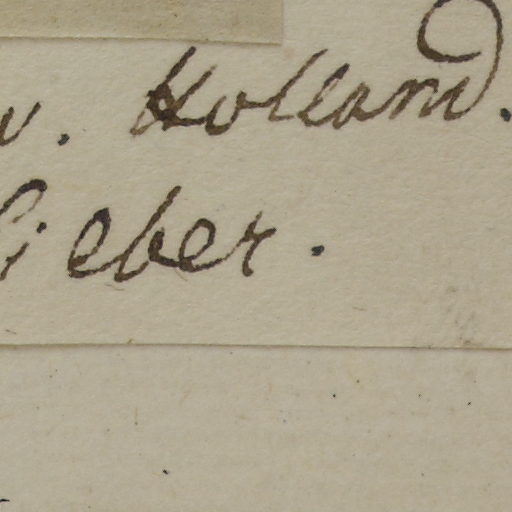 v. Holland.
ieber.